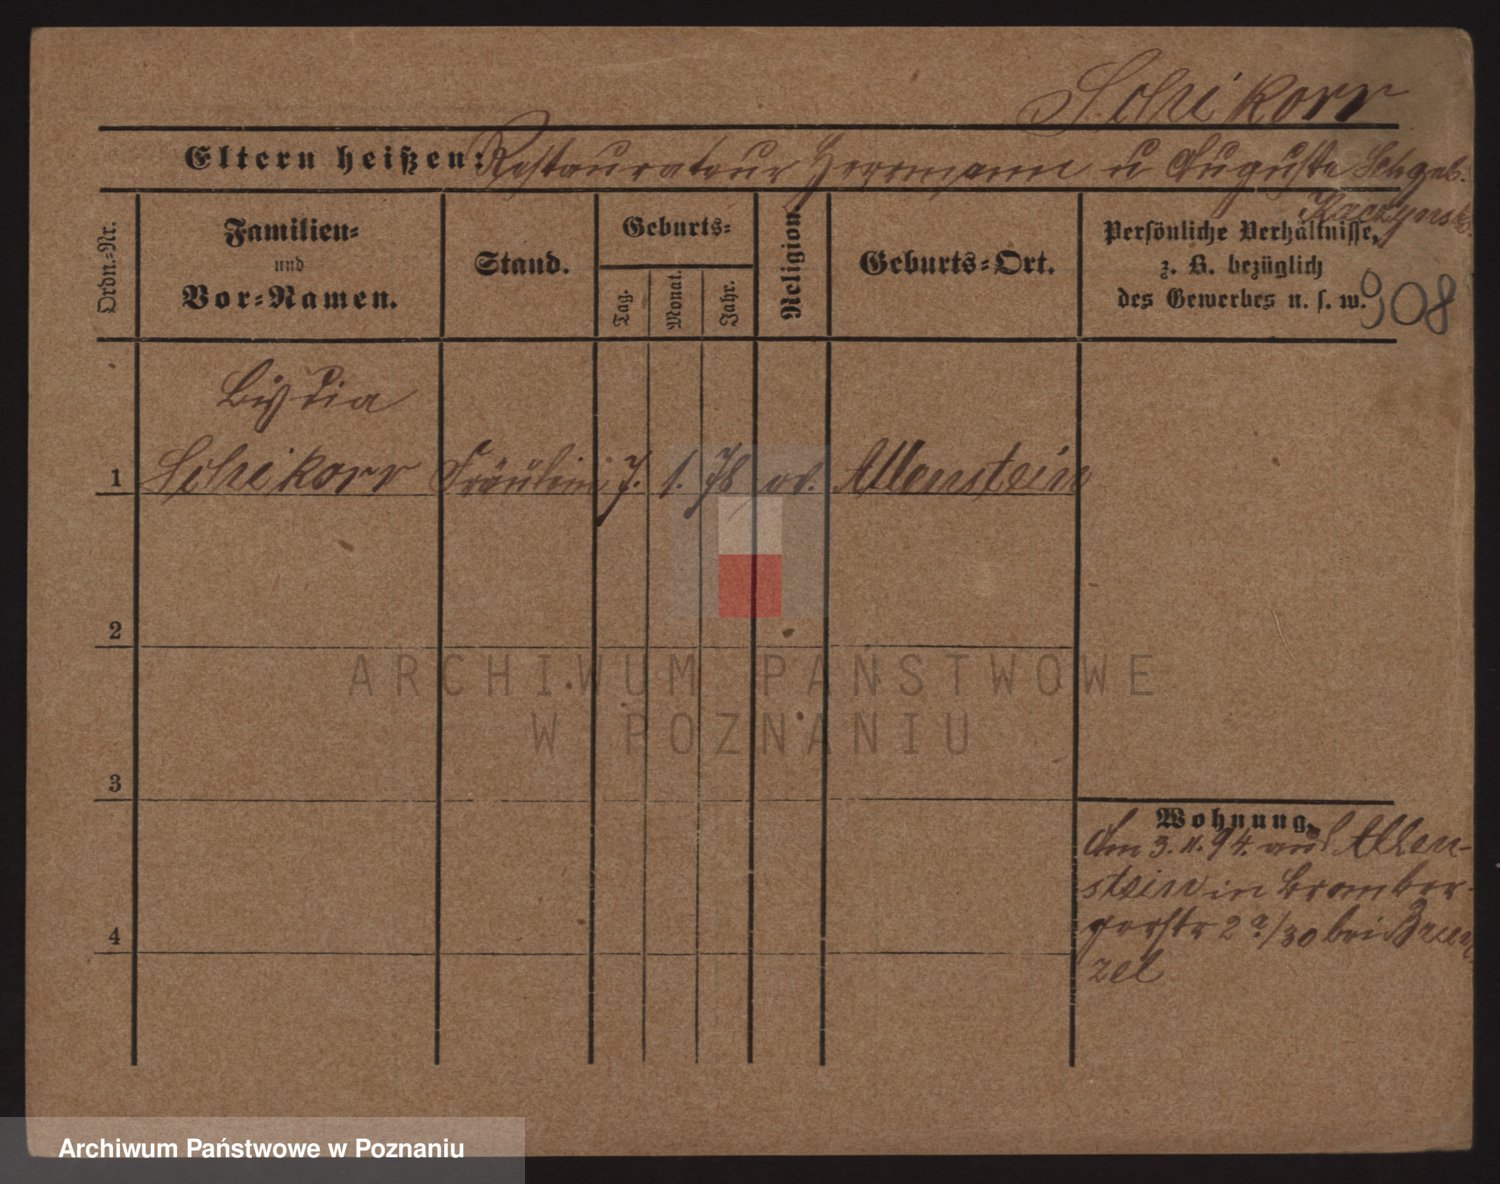 Schikorr
Eltern heißen: Restaurateur Herrmann u Auguste Sch geb.
Kaczynski
Ordn.-Nr.
Familien-
und
Vor-Namen.
Stand.
Geburts-
Tag.
Monat.
Jahr.
Religion.
Geburts-Ort.
Persönliche Verhältnisse,
z. B. bezüglich
des Gewerbes u. s. w.
908
Lydia
1 Schikorr Fräulein 7. 1. 78 ev. Allenstein
2
3
4
Wohnung.
Am 3.11.94. aus Allen-
stein in Bromber-
gerstr 2a/30 bei
zel
ARCHIWUM PAŃSTWOWE
W POZNANIU
Archiwum Państwowe w Poznaniu